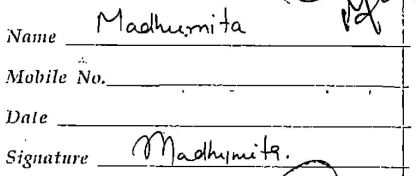 Name Madhumita
Mobile No.
Date
Signature Madhumita.